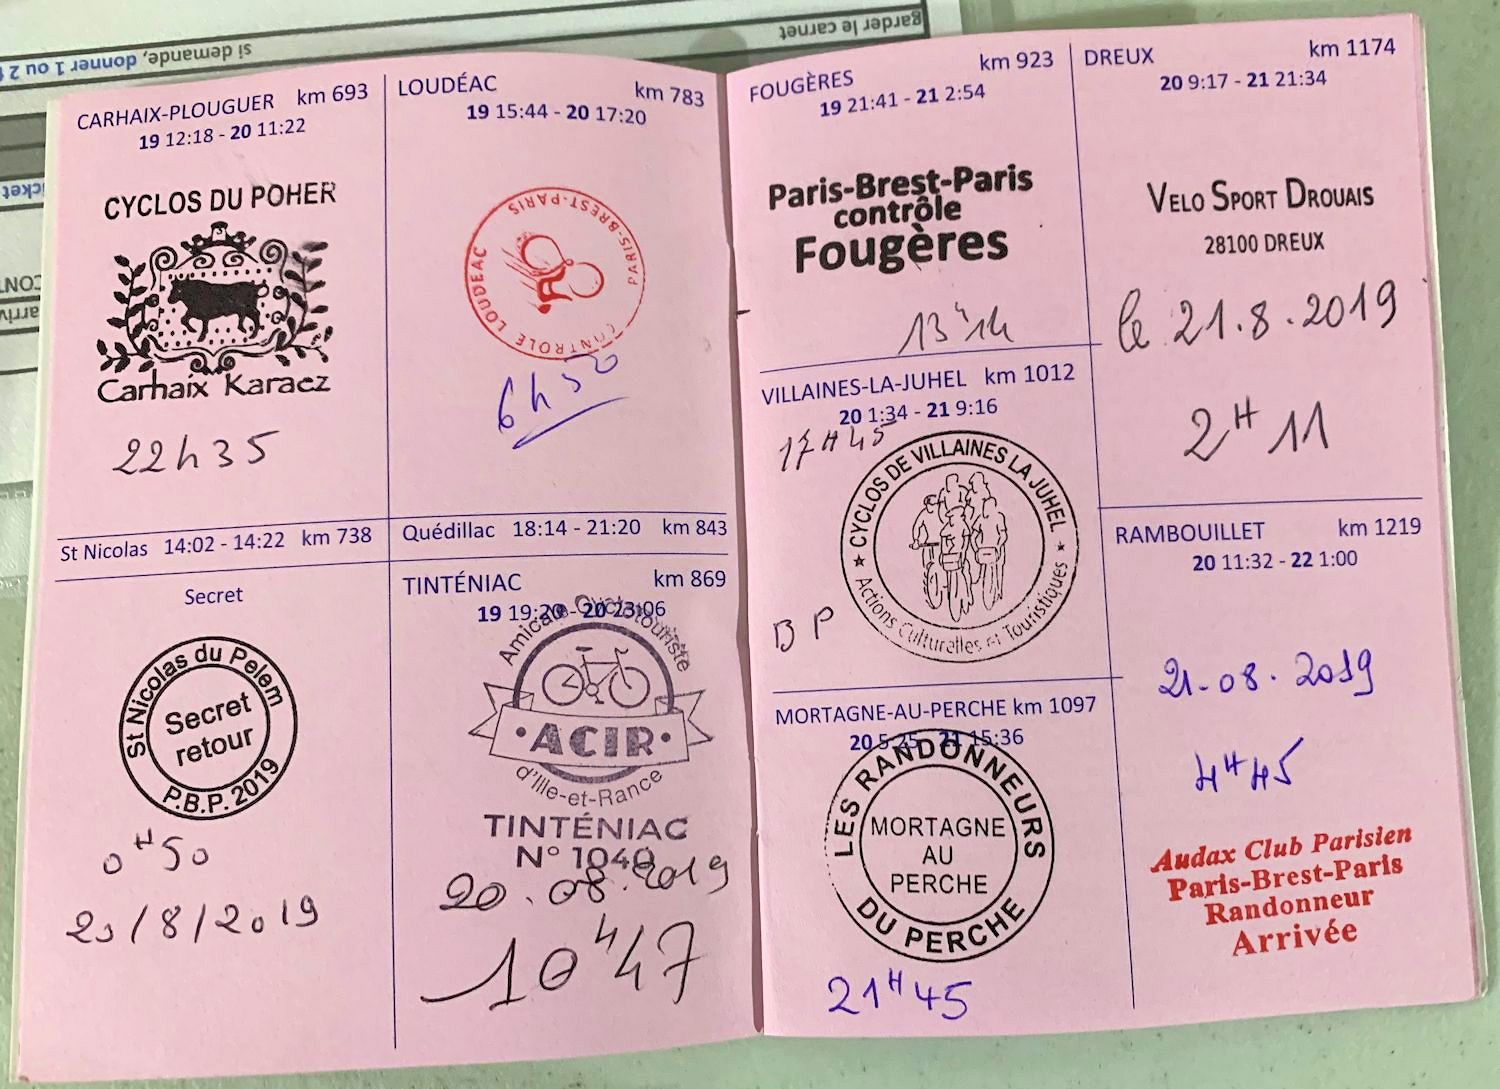 garder le carnet
si demande, donner 1 ou 2
CARHAIX-PLOUGUER km 693
19 12:18 - 20 11:22
CYCLOS DU POHER
Carhaix Karaez
22h35
St Nicolas 14:02 - 14:22 km 738
Secret
St Nicolas du Pelem
Secret
retour
P.B.P. 2019
0H50
20/8/2019
LOUDÉAC km 783
19 15:44 - 20 17:20
CONTROLE LOUDEAC
PARIS-BREST-PARIS
6h50
Quédillac 18:14 - 21:20 km 843
TINTÉNIAC km 869
19 19:20 - 20 23:06
Amicale Cyclotouriste
ACIR
d'Ille-et-Rance
TINTÉNIAC
N° 1040
20.08.2019
10h47
FOUGÈRES km 923
19 21:41 - 21 2:54
Paris-Brest-Paris
contrôle
Fougères
13h14
VILLAINES-LA-JUHEL km 1012
20 1:34 - 21 9:16
17H45
CYCLOS DE VILLAINES LA JUHEL
Actions Culturelles et Touristiques
BP
MORTAGNE-AU-PERCHE km 1097
20 5:25 - 21 15:36
LES RANDONNEURS
MORTAGNE
AU
PERCHE
DU PERCHE
21H45
DREUX km 1174
20 9:17 - 21 21:34
VELO SPORT DROUAIS
28100 DREUX
le 21.8.2019
2H11
RAMBOUILLET km 1219
20 11:32 - 22 1:00
21-08.2019
4H45
Audax Club Parisien
Paris-Brest-Paris
Randonneur
Arrivée